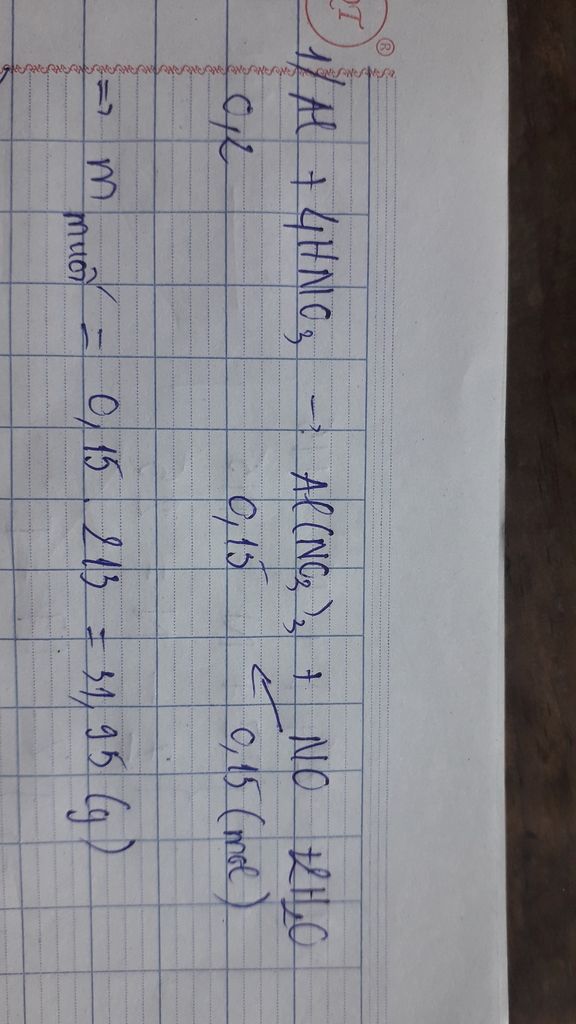 1) Al + 4HNO₃ → Al(NO₃)₃ + NO + 2H₂O
0,2 0,15 ← 0,15 (mol)
⇒ m muối = 0,15 . 213 = 31,95 (g)